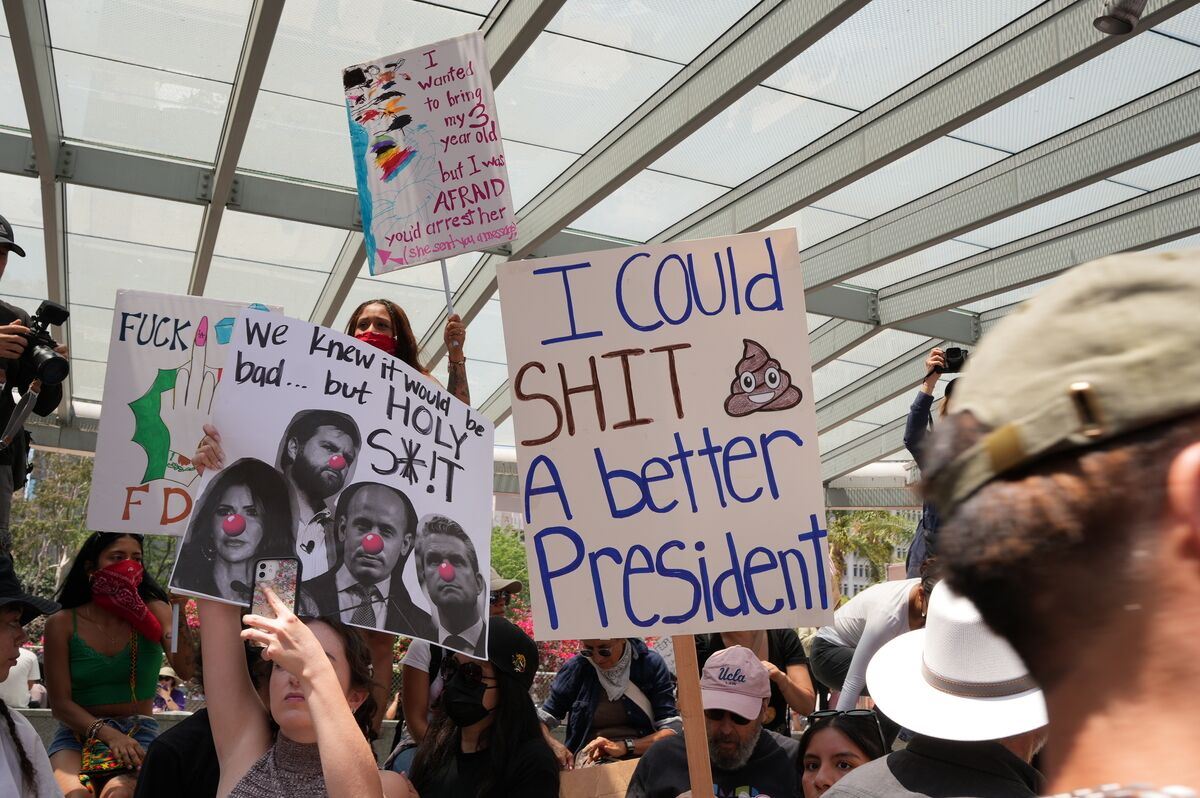 I
wanted
to bring
my 3
year old
but I was
AFRAID
you'd arrest her
(she sent you a message)
FUCK
FD
We knew it would be
bad... but HOLY
S*!T
I COULD
SHIT
A better
President
Ucla